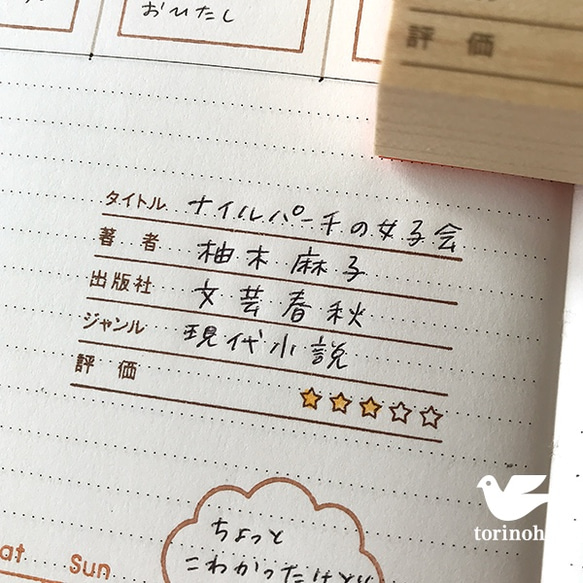 おひたし
評 価
タイトル ナイルパーチの女子会
著 者 柚木麻子
出版社 文芸春秋
ジャンル 現代小説
評 価
ちょっと
こわかったけど
Sun
torinoh